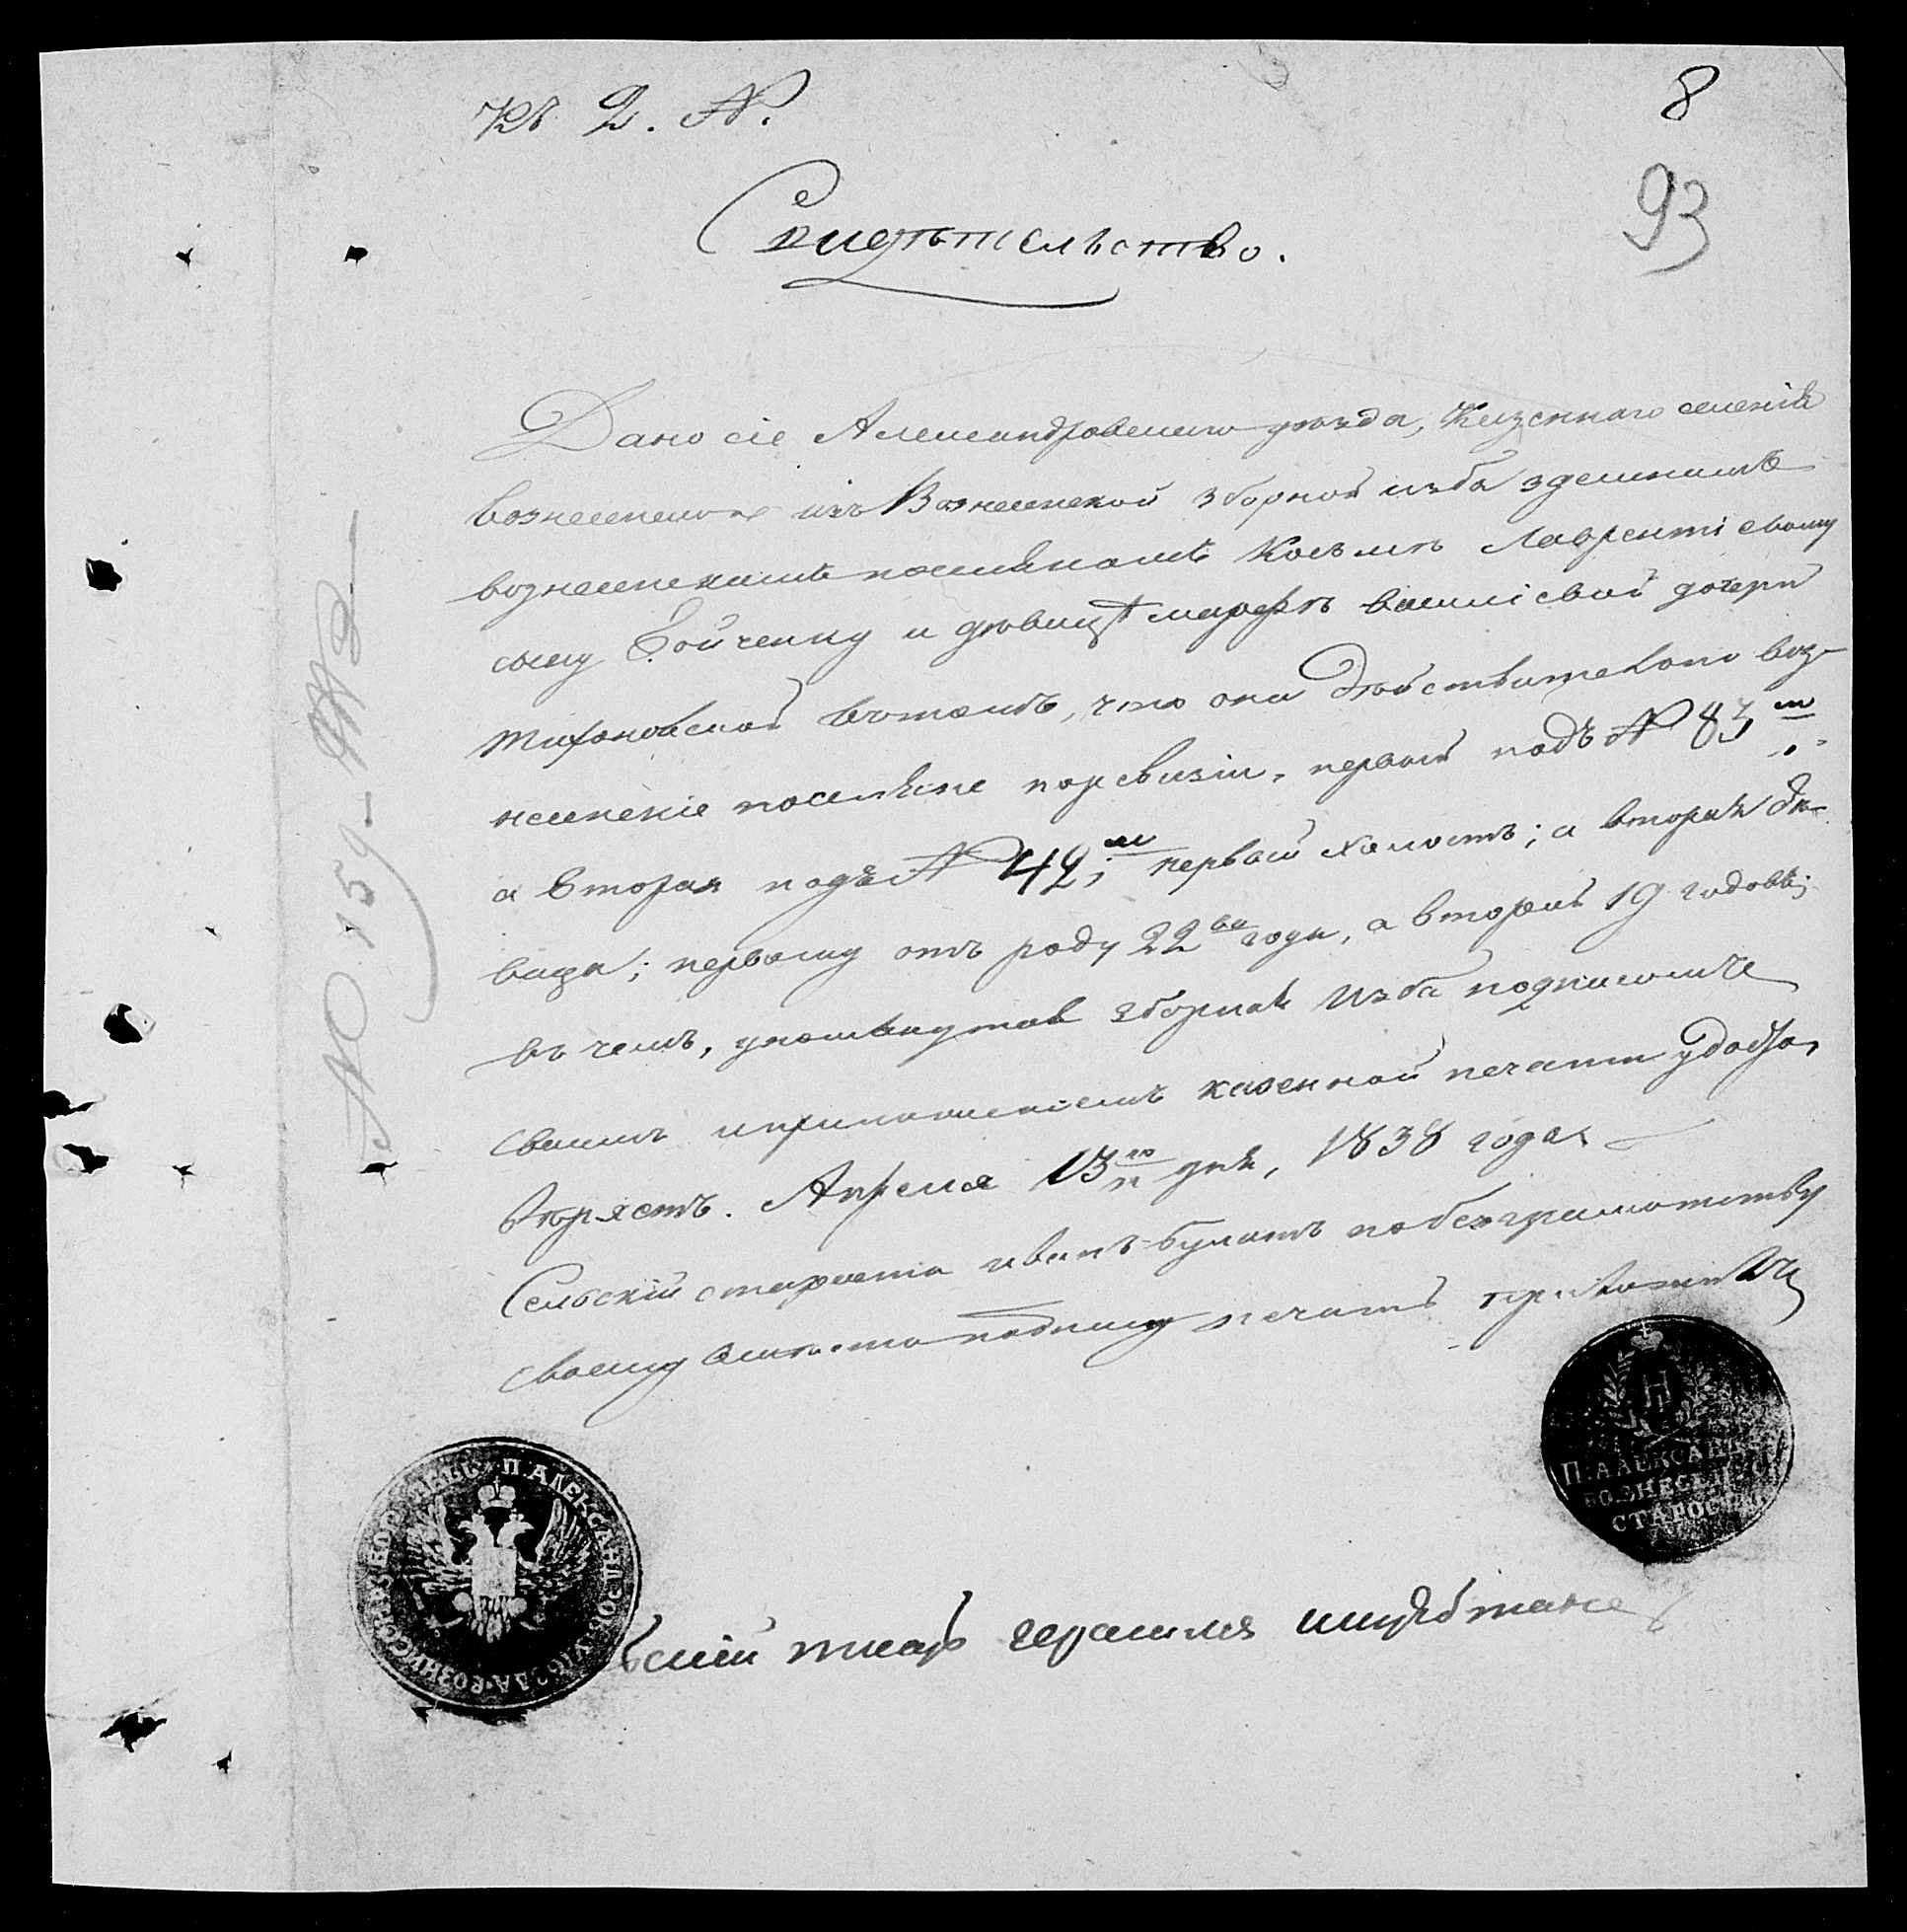 къ 2. №.
8
93
Свидѣтельство.
Дано сіе Александровскаго уѣзда, Казеннаго селенія
вознесенского изъ Вознесенской зборной изба здешнимъ
вознесенскимъ поселянамъ Косьмѣ Лаврентіевому
сыну Бойченку и дѣвицѣ марѳѣ василіевой дочери
Тихоновской вътомъ, что они Дѣйствително воз-
несенскіе поселяне поревизіи, первой подъ № 83 м
а вторая подъ № 42; м первой холостъ; а вторая дѣ-
вица; первому отъ роду 22 ва года, а второй 19 годовъ;
въ чемъ, упомянутая зборная изба подписомъ
своимъ иприложеніемъ казенной печати удосто-
вѣряетъ. Апреля 13 го дня, 1838 года
Сельскій староста иванъ булатъ побезграмотству
своему вместо подпису печать приложилъ
№ 159
П. АЛЕКСАНДРОВ: УѢЗДА ВОЗНИСЕН: ЗБОР:
П: АЛЕКСАН
ВОЗНЕСЕН
СТАРОС
ьскій писарь герасимъ